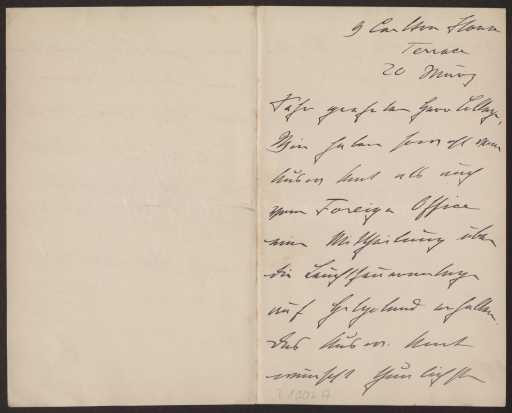 9 Carlton House
Terrace
20 März
Sehr geehrter Herr College,
Wir haben sowohl vom
Ausw. Amt als auch
vom Foreign Office
eine Mittheilung über
die Leuchtfeueranlage
auf Helgoland erhalten.
Das Ausw. Amt
wünscht thunlichst